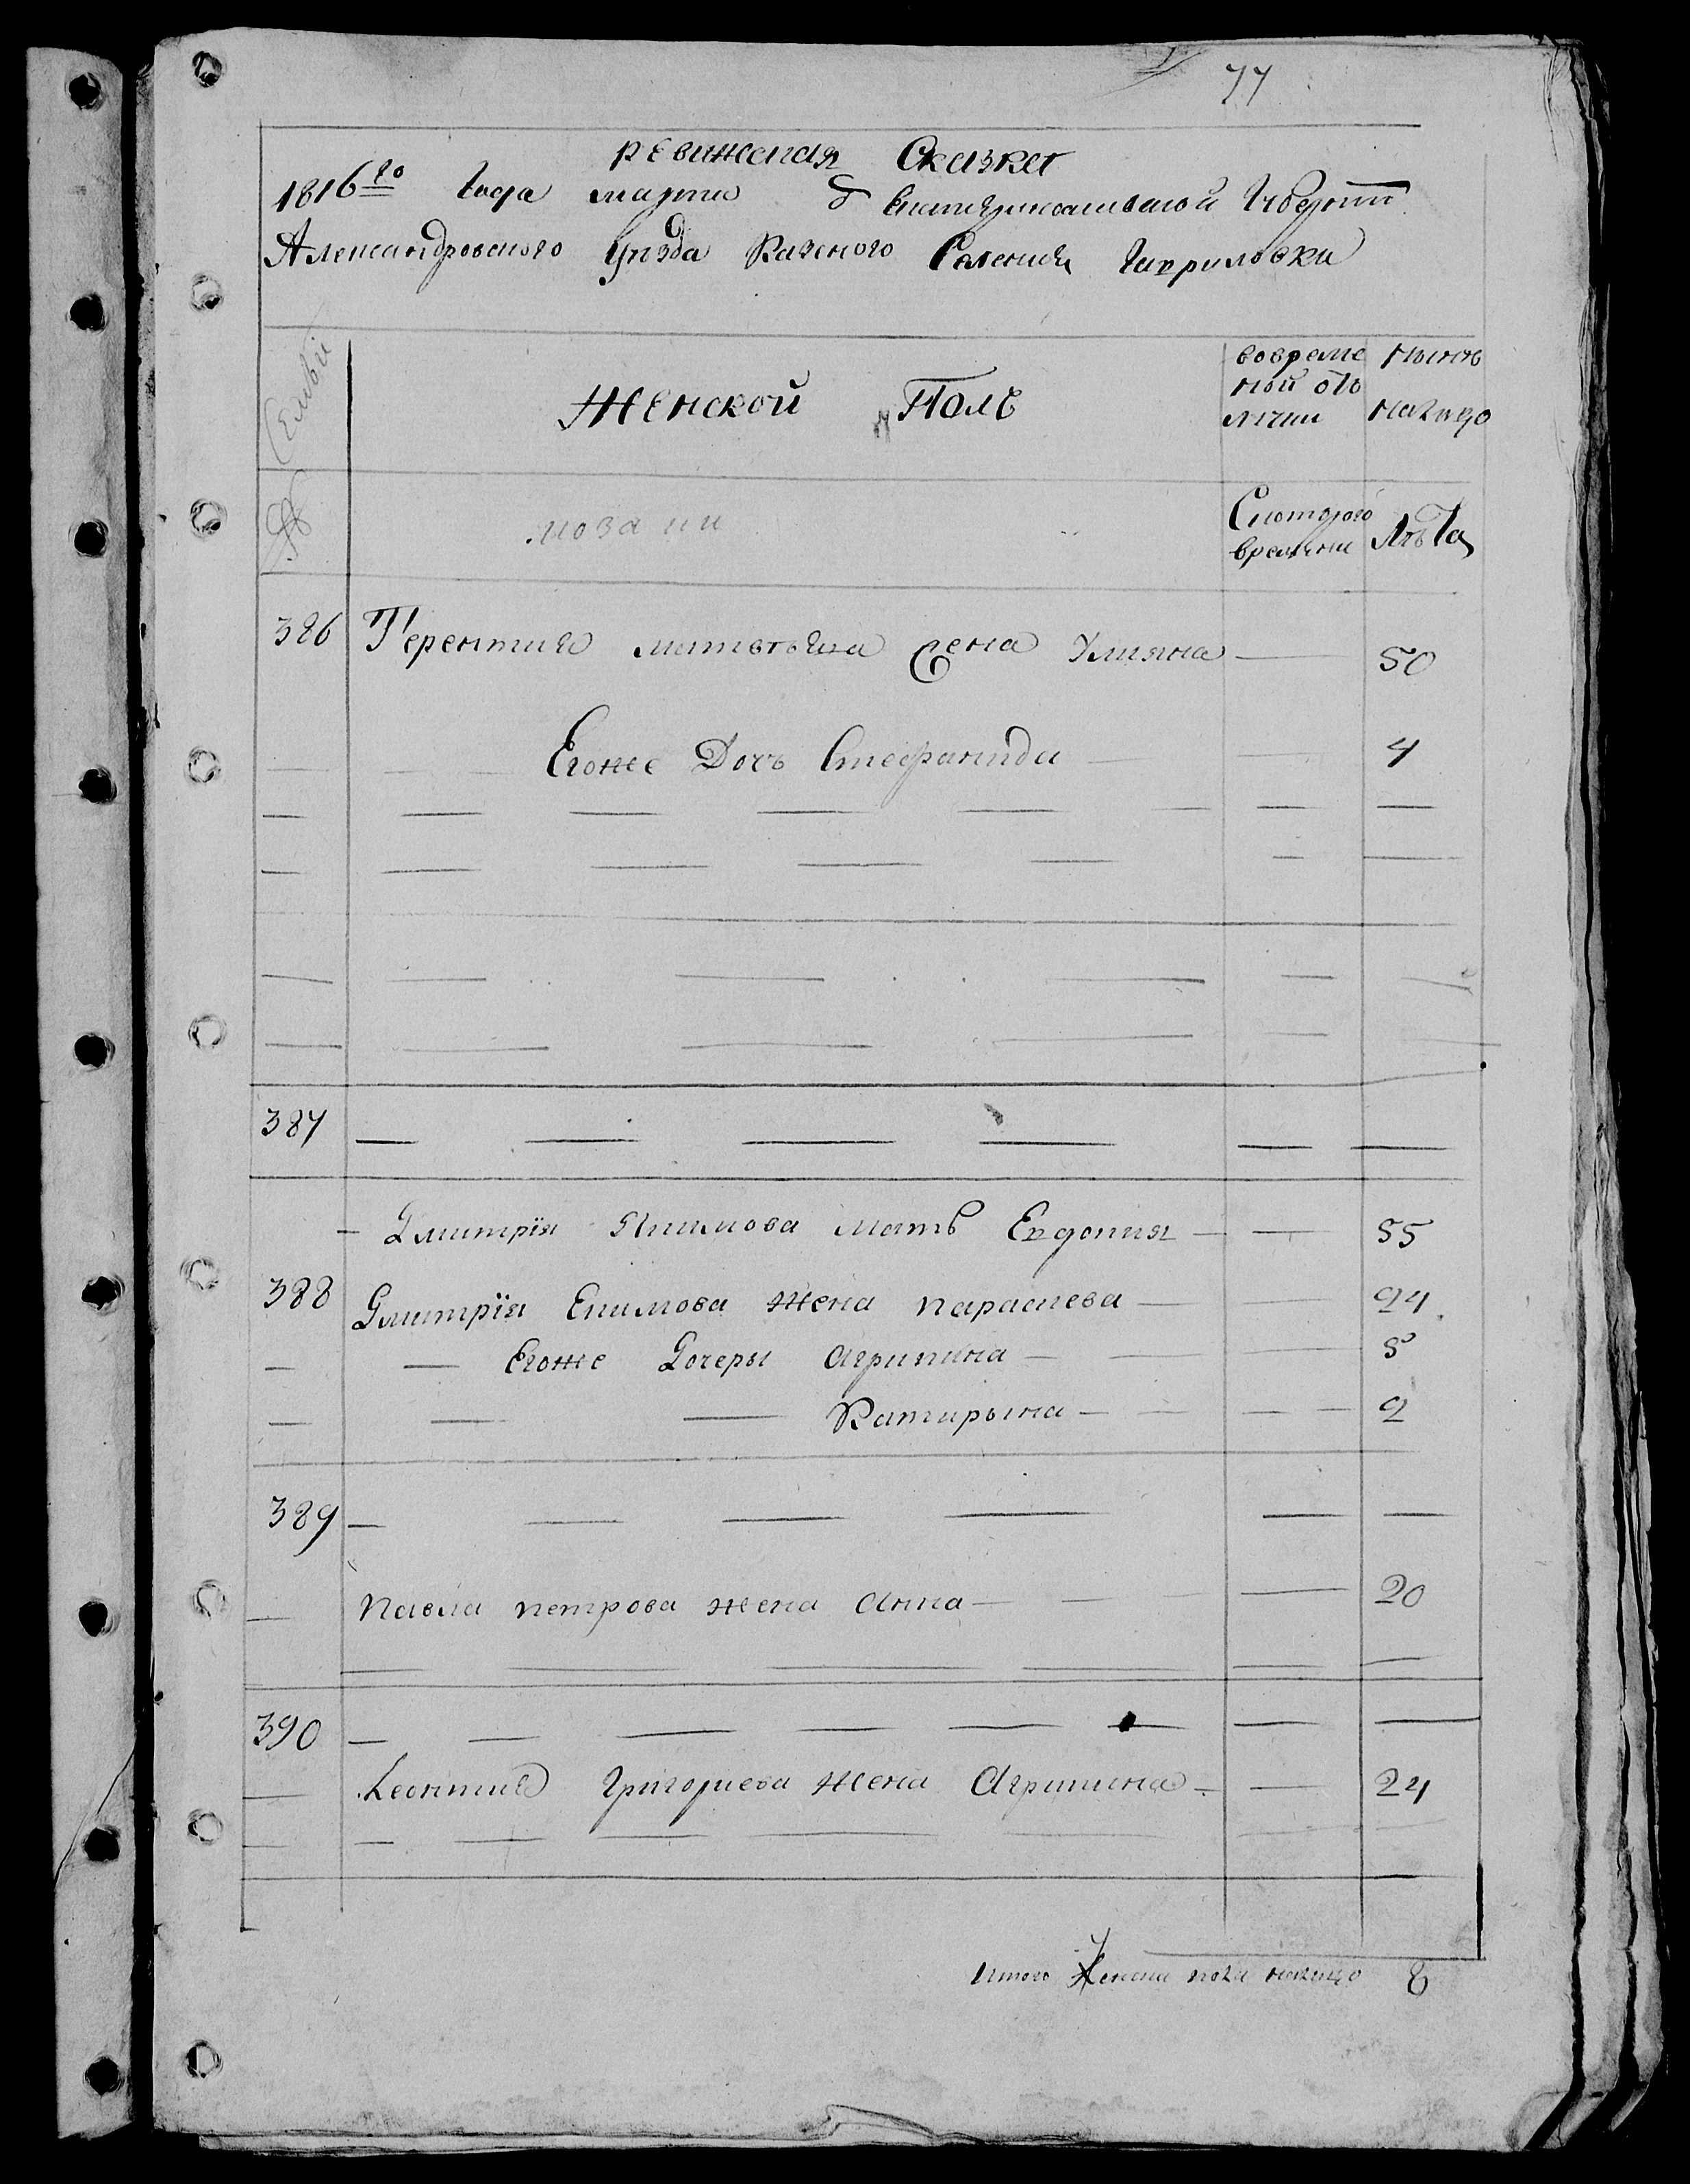 77
ревижская Сказка
1816го Года марта Екатеринославской Губерни
Александровского Уезда Казеного Селения Гавриловки
Семьи
Женской Полъ
вовреме ной отлучки
Нынѣ налицо
№
Скоторого времени
Лѣта
386 Терентия матвѣева жена Улияна 50
Егоже Дочь Стефанида 4
387
Дмитрїя Акимова мать Евдокия 55
388 Дмитрїя Екимова жена параскева 24
Егоже Дочеры Агрипина 5
Катирына 2
389
павла петрова жена Анна 20
390
Леонтия Григориева жена Агрипина 24
Итого Женска пола налицо 8